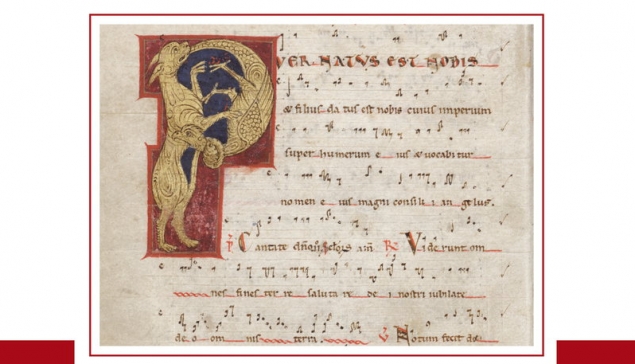 PVER NATVS EST NOBIS
& filius da tus est nobis cuius imperium
super humerum e ius & vocabitur
nomen e ius magni consili i an gelus.
Cantate R Viderunt om
nes fines ter re saluta re de i nostri iubilate
de o om nis terra. V Notum fecit